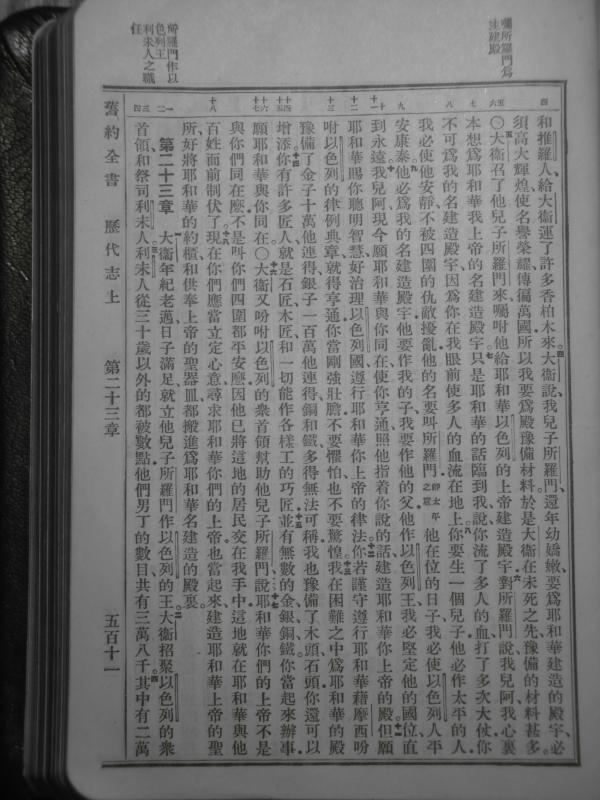 囑所羅門爲
主建殿
所羅門作以
色列王
利未人之職
任
四
五
六
七
八
九
十
十一
十二
十三
十四
十五
十六
十七
十八
一
二
三
四
和推羅人給大衞運了許多香柏木來大衞說我兒子所羅門還年幼嬌嫩要爲耶和華建造的殿宇必
須高大輝煌使名譽榮耀傳徧萬國所以我要爲殿豫備材料於是大衞在未死之先豫備的材料甚多
〇大衞召了他兒子所羅門來囑咐他給耶和華以色列的上帝建造殿宇對所羅門說我兒阿我心裏
本想爲耶和華我上帝的名建造殿宇只是耶和華的話臨到我說你流了多人的血打了多次大仗你
不可爲我的名建造殿宇因爲你在我眼前使多人的血流在地上你要生一個兒子他必作太平的人
我必使他安靜不被四圍的仇敵擾亂他的名要叫所羅門卽太平之意他在位的日子我必使以色列人平
安康泰他必爲我的名建造殿宇他要作我的子我要作他的父他作以色列王我必堅定他的國位直
到永遠我兒阿現今願耶和華與你同在使你亨通照他指着你說的話建造耶和華你上帝的殿但願
耶和華賜你聰明智慧好治理以色列國遵行耶和華你上帝的律法你若謹守遵行耶和華藉摩西吩
咐以色列的律例典章就得亨通你當剛強壯膽不要懼怕也不要驚惶我在困難之中爲耶和華的殿
豫備了金子十萬他連得銀子一百萬他連得銅和鐵多得無法可稱我也豫備了木頭石頭你還可以
增添你有許多匠人就是石匠木匠和一切能作各樣工的巧匠並有無數的金銀銅鐵你當起來辦事
願耶和華與你同在〇大衞又吩咐以色列的衆首領幫助他兒子所羅門說耶和華你們的上帝不是
與你們同在麽不是叫你們四圍都平安麽因他已將這地的居民交在我手中這地就在耶和華與他
百姓面前制伏了現在你們應當立定心意尋求耶和華你們的上帝也當起來建造耶和華上帝的聖
所好將耶和華的約櫃和供奉上帝的聖器皿都搬進爲耶和華名建造的殿裏
第二十三章 大衞年紀老邁日子滿足就立他兒子所羅門作以色列的王大衞招聚以色列的衆
首領和祭司利未人利未人從三十歲以外的都被數點他們男丁的數目共有三萬八千其中有二萬
舊約全書 歷代志上 第二十三章 五百十一